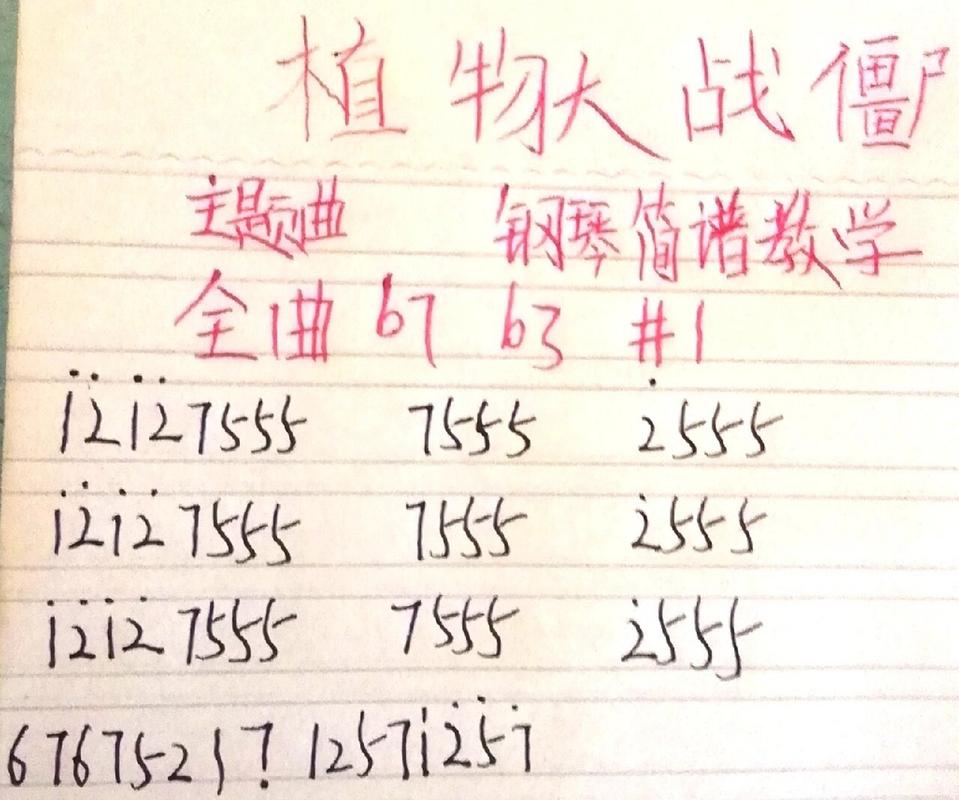 植物大战僵尸
主题曲 钢琴简谱教学
全曲 b7 b3 #1
1̇2̇1̇2̇7555 7555 2̇555
1̇2̇1̇2̇7555 7555 2̇555
1̇2̇1̇2̇7555 7555 2̇555
67675217̣ 12571̇2̇5̇7̇